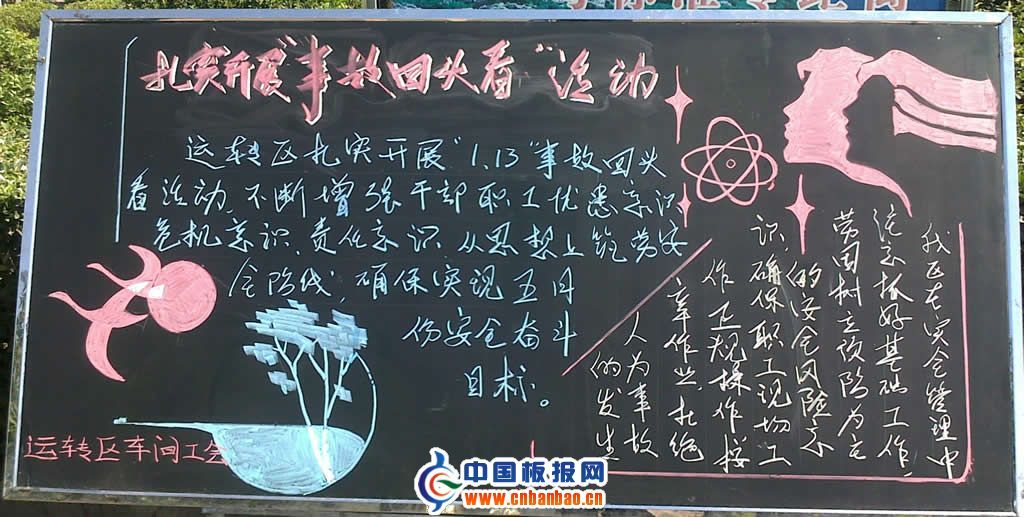 扎实开展“事故回头看”活动
运转区扎实开展“1.13”事故回头
看活动,不断增强干部职工忧患意识,
危机意识,责任意识,从思想上筑劳安
全防线,确保实现五月
份安全奋斗
目标。
我区在安全管理中
注意抓好基础工作
劳固树立预防为主
的安全风险意
识,确保职工现场工
作卫规操作按
章作业杜绝
人为事故
的发生
运转区车间工会
中国板报网
www.cnbanbao.cn